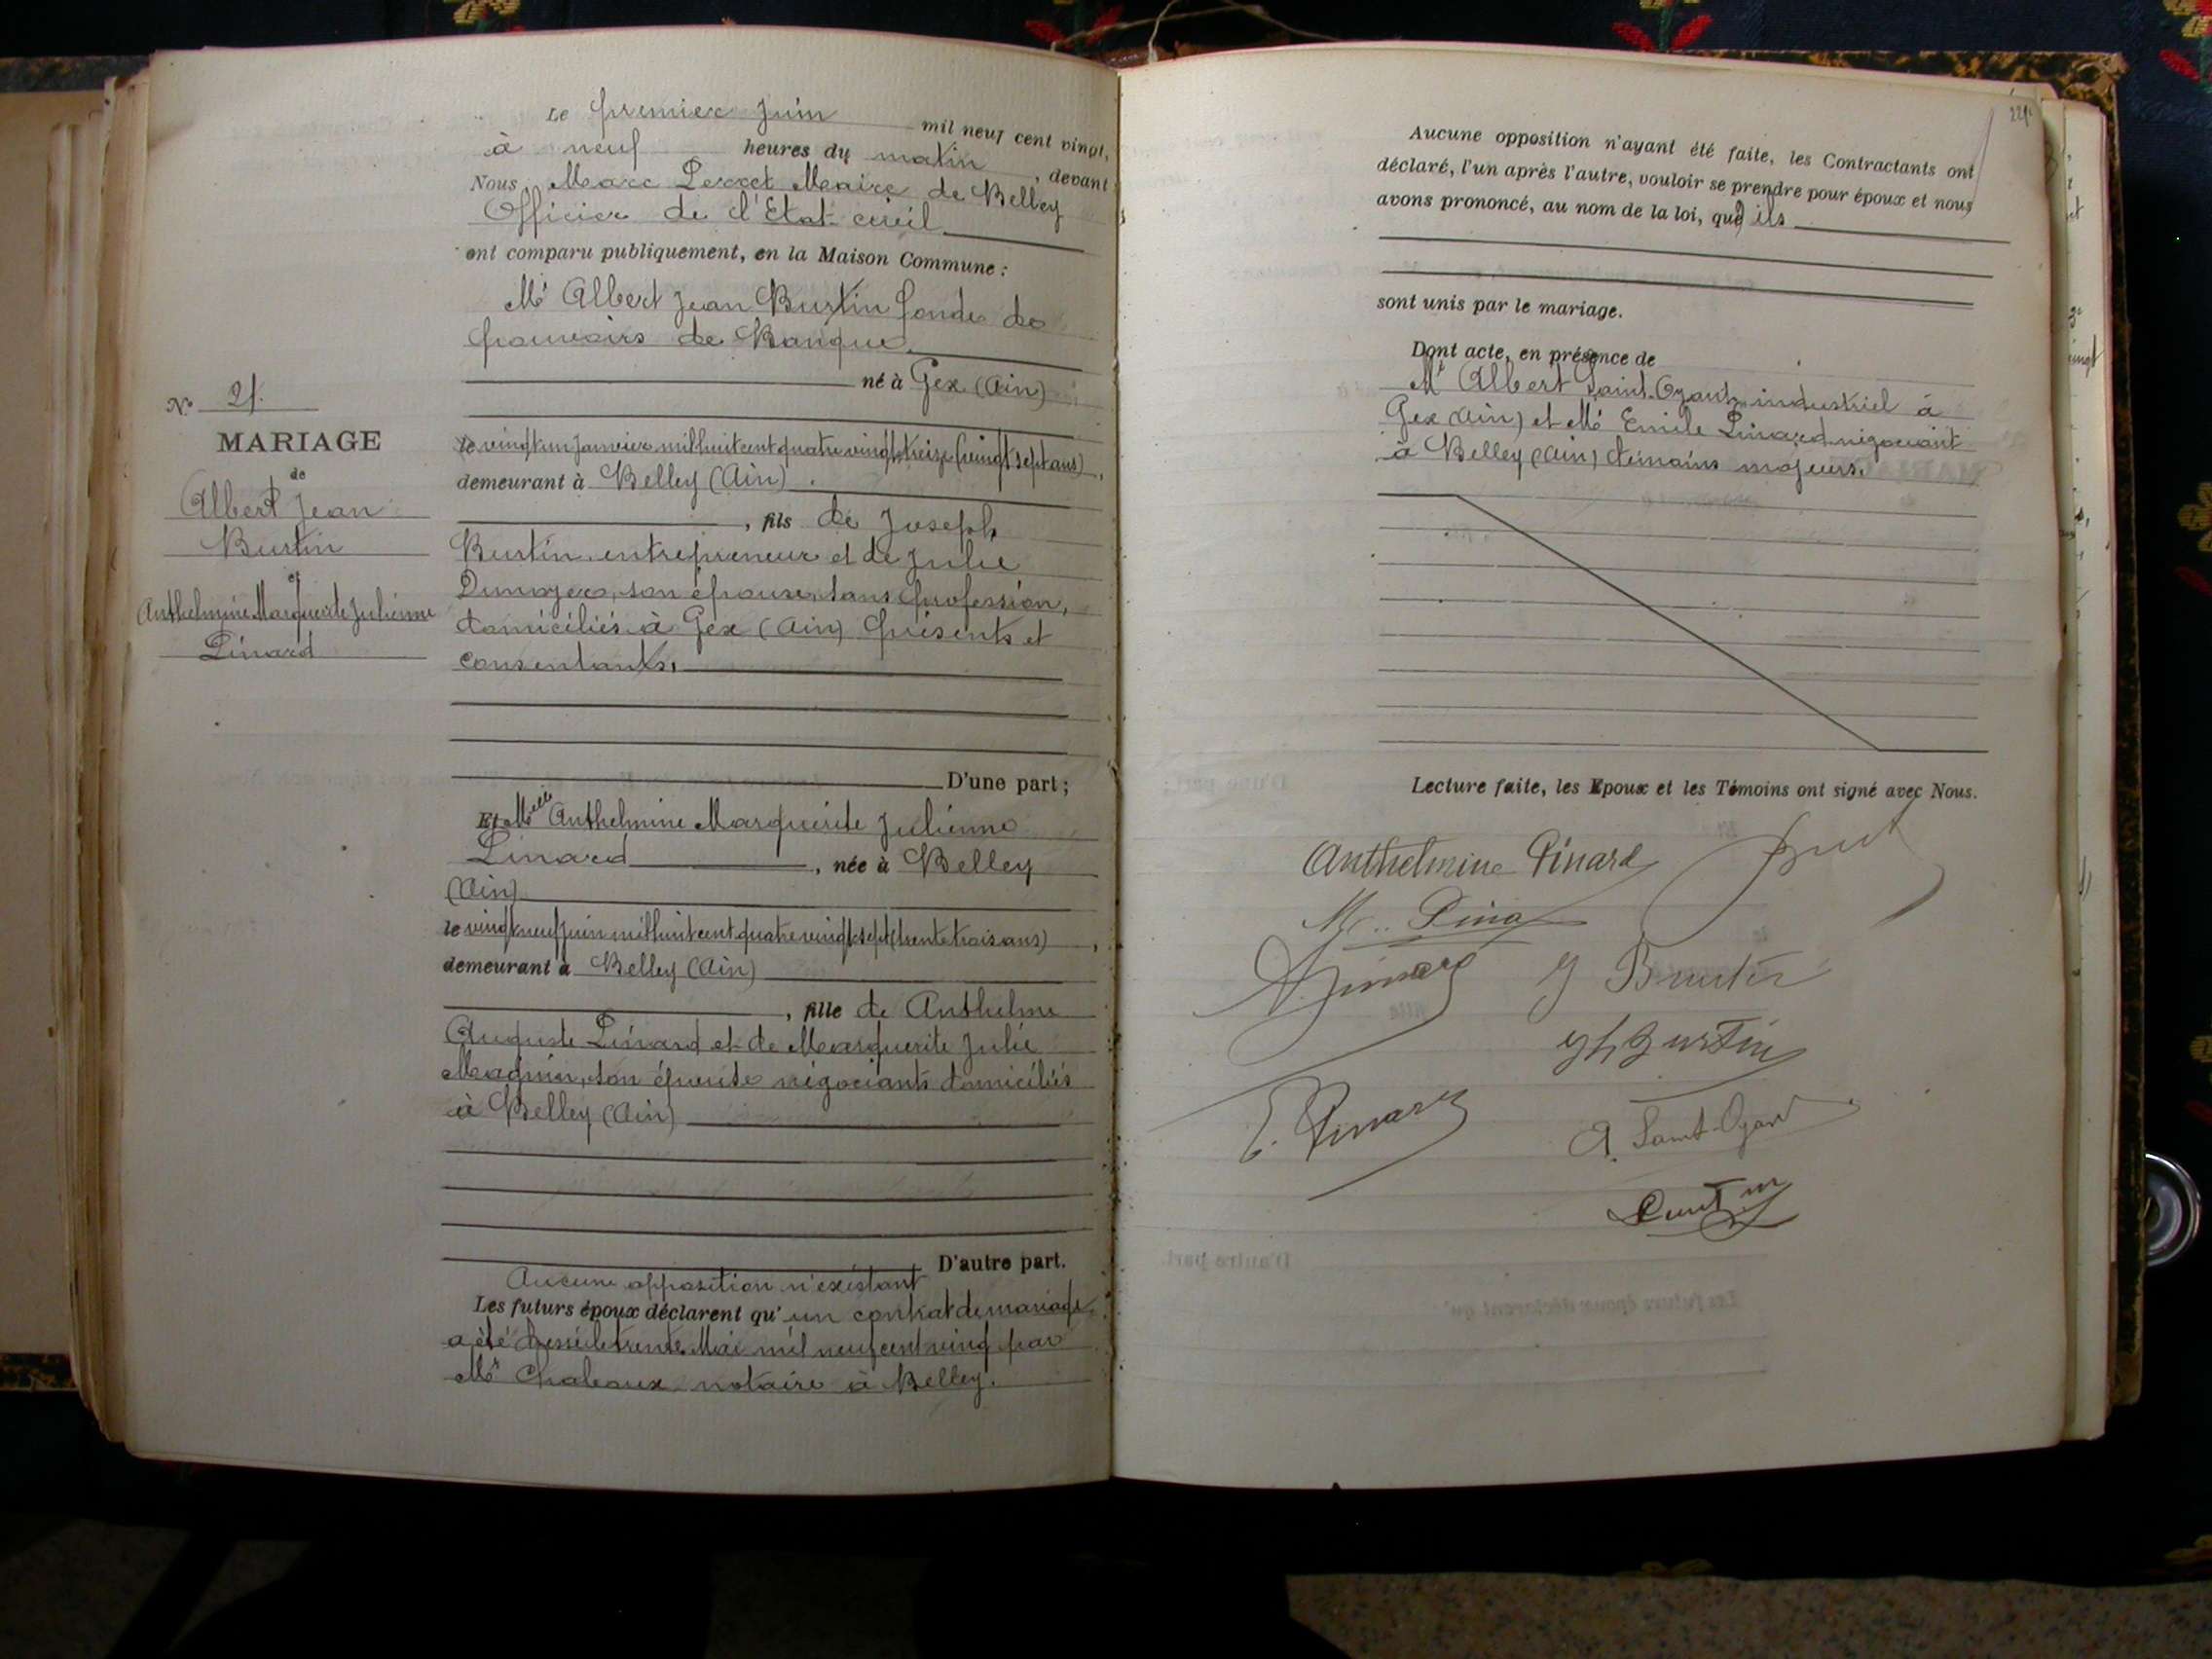 Le premier Juin mil neuf cent vingt,
à neuf heures du matin, devant
Nous Marc Perret Maire de Belley
Officier de l'Etat-civil
ont comparu publiquement, en la Maison Commune :
Mr Albert Jean Burtin fondé de
pouvoirs de Banque
né à Gex (Ain)
le vingt un Janvier mil huit cent quatre vingt treize (vingt sept ans),
demeurant à Belley (Ain).
, fils de Joseph
Burtin entrepreneur et de Julie
son épouse, sans profession,
domiciliés à Gex (Ain) présents et
consentants,
D'une part ;
N° 21.
MARIAGE
de
Albert Jean
Burtin
et
Anthelmine Marguerite Julienne
Pinard
Et Melle Anthelmine Marguerite Julienne
Pinard, née à Belley
(Ain)
le vingt neuf Juin mil huit cent quatre vingt sept (trente trois ans),
demeurant à Belley (Ain)
, fille de Anthelme
Auguste Pinard et de Marguerite Julie
Magnin, son épouse négociants domiciliés
à Belley (Ain)
D'autre part.
Aucune opposition n'existant
Les futurs époux déclarent qu'un contrat de mariage
a été dressé le trente Mai mil neuf cent vingt par
Me notaire à Belley.
221
Aucune opposition n'ayant été faite, les Contractants ont
déclaré, l'un après l'autre, vouloir se prendre pour époux et nous
avons prononcé, au nom de la loi, qu'ils
sont unis par le mariage.
Dont acte, en présence de
Mr Albert Saint-Oyant, industriel à
Gex (Ain) et Mr Emile Pinard négociant
à Belley (Ain) témoins majeurs.
Lecture faite, les Epoux et les Témoins ont signé avec Nous.
Anthelmine Pinard
A. Pinard
J Burtin
Burtin
E. Pinard
A. Saint-Oyant
Burtin